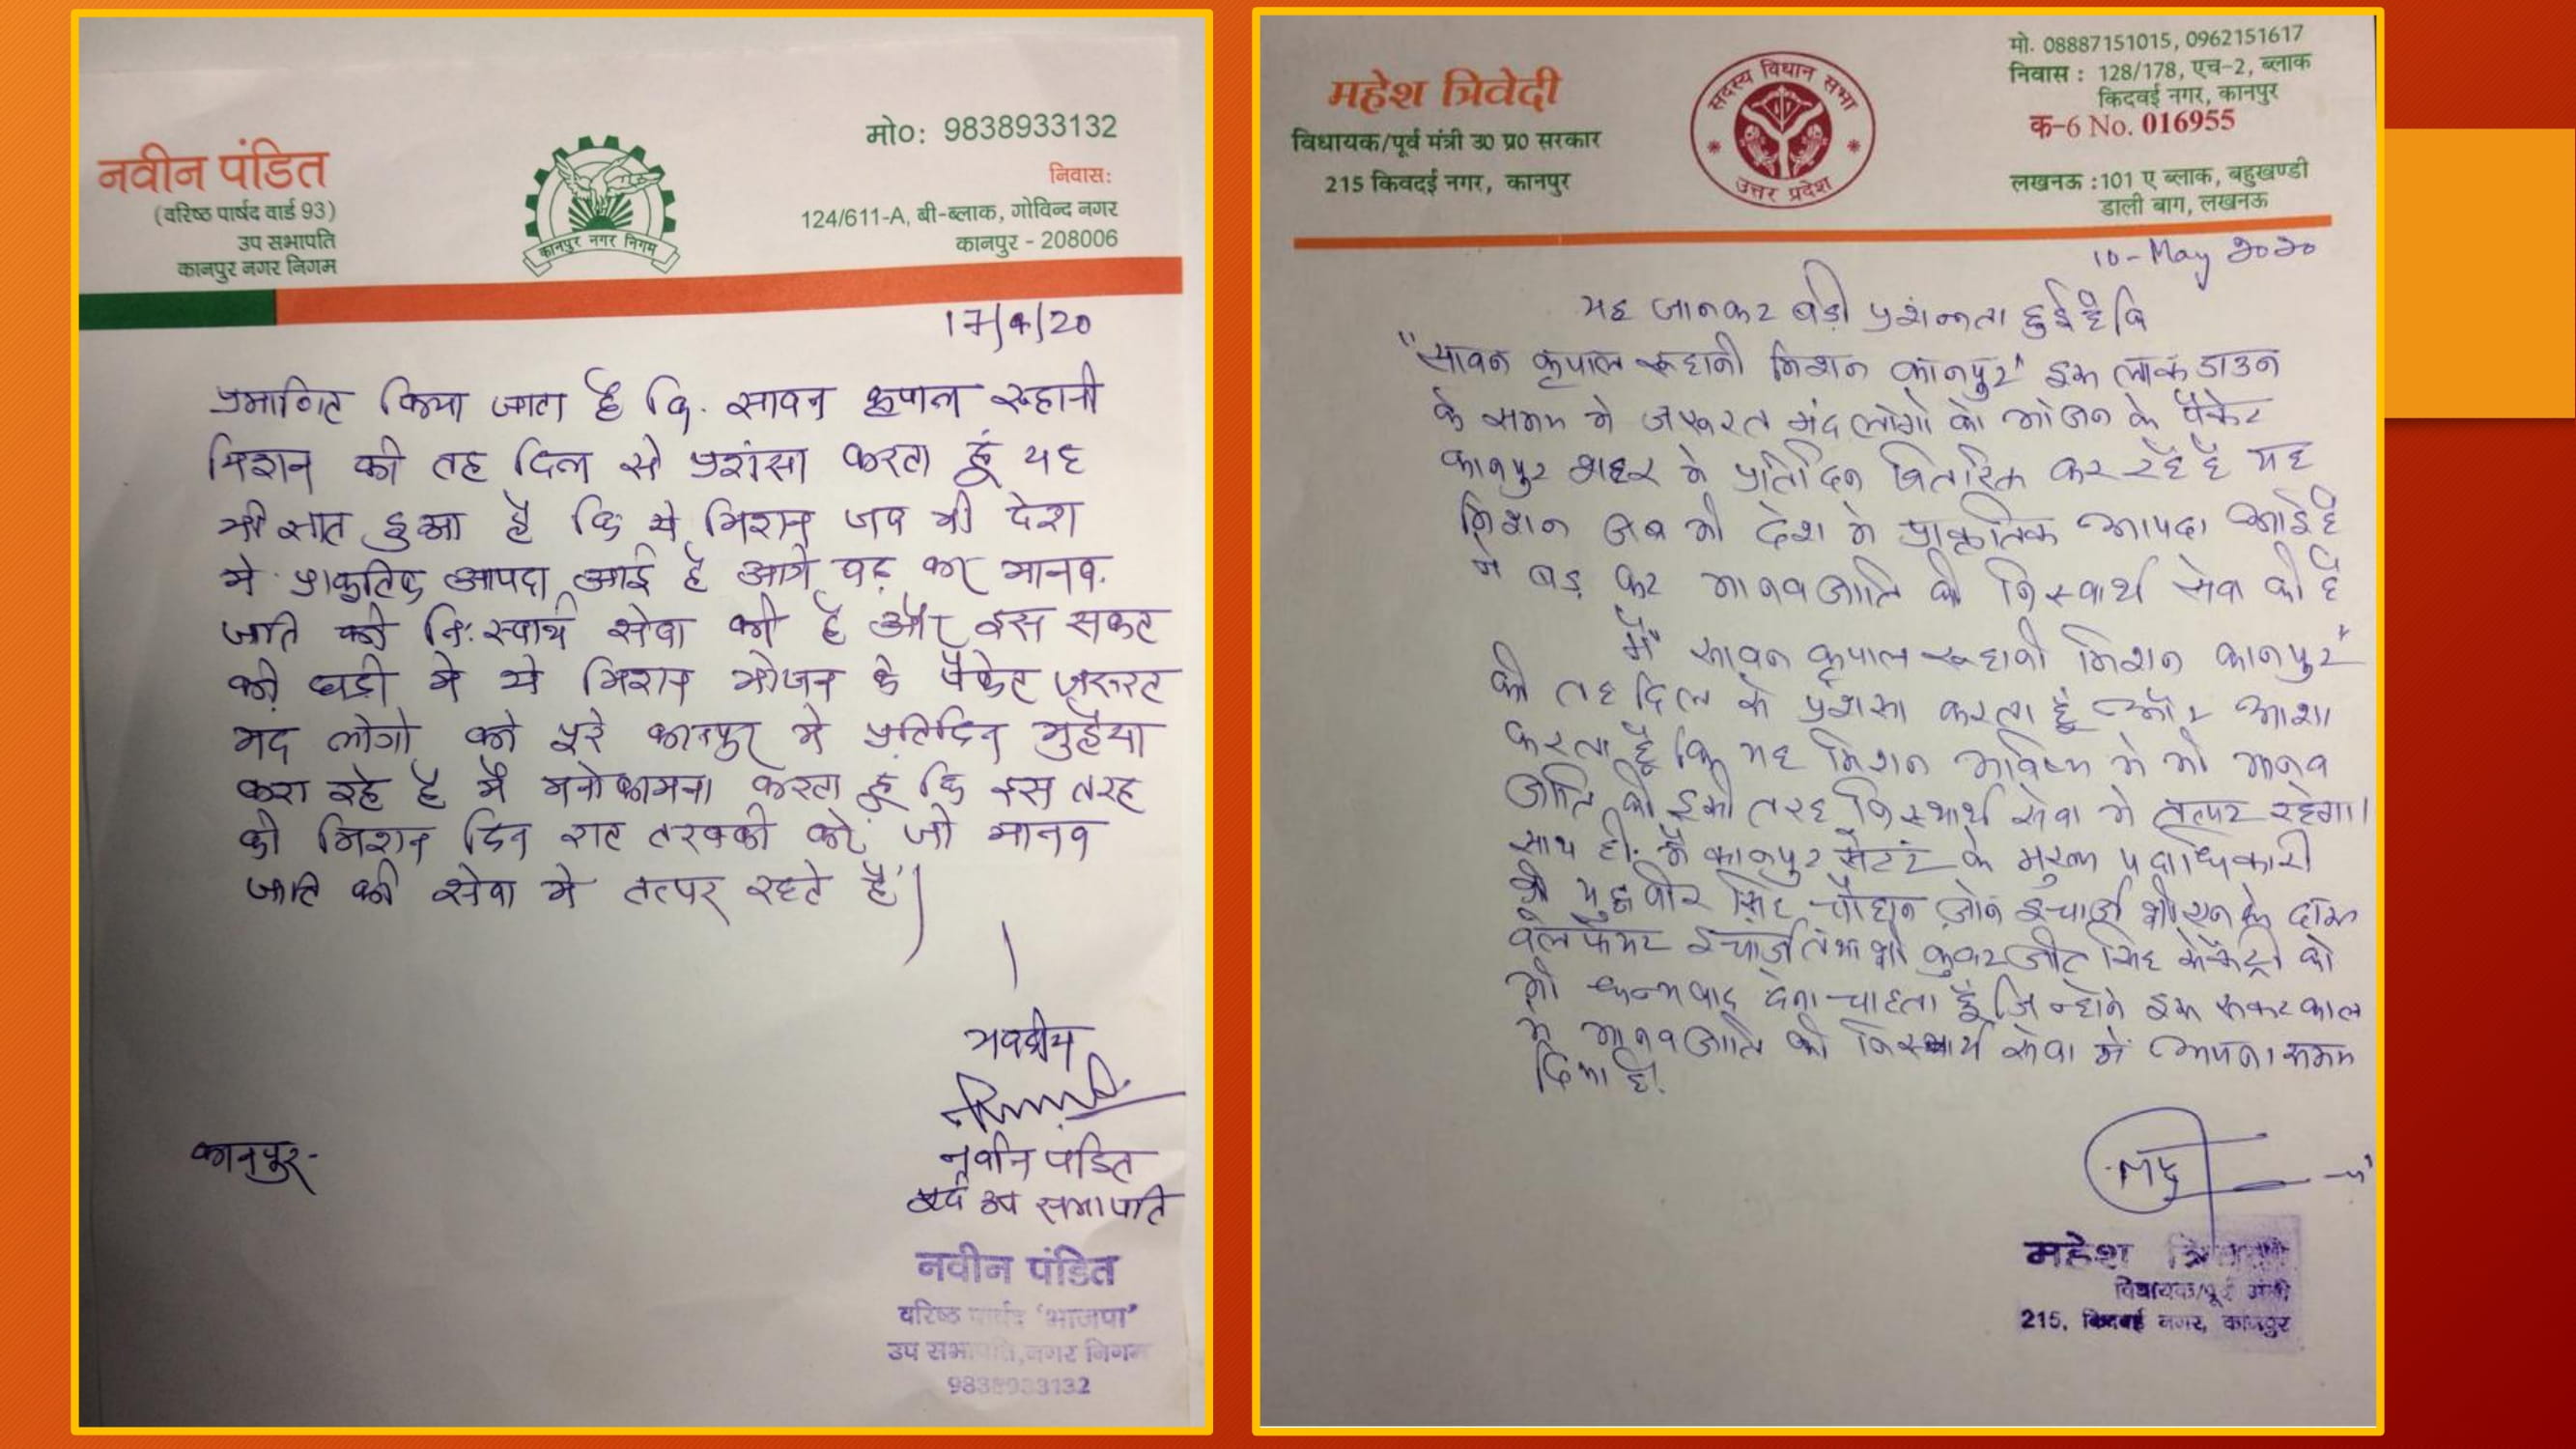 नवीन पंडित
(वरिष्ठ पार्षद वार्ड 93)
उप सभापति
कानपुर नगर निगम
कानपुर नगर निगम
मो०: 9838933132
निवास:
124/611-A, बी-ब्लाक, गोविन्द नगर
कानपुर - 208006
17/4/20
प्रमाणित किया जाता है कि. सावन कृपाल रुहानी
मिशन की तह दिल से प्रशंसा करता हूं यह
भी ज्ञात हुआ है कि ये मिशन जब भी देश
मे प्राकृतिक आपदा आई है आगे बढ़ कर मानव.
जाति की नि:स्वार्थ सेवा की है और इस सकट
की घड़ी मे ये मिशन भोजन के पैकेट ज़रूरट
मद लोगो को पूरे कानपुर मे प्रतिदिन मुहैया
करा रहे है मै मनोकामना करता हूं कि इस तरह
की मिशन दिन रात तरक्की करे जो मानव
जाति की सेवा मे तत्पर रहते है।
भवदीय
नवीन पंडित
उप सभापति
कानपुर-
नवीन पंडित
वरिष्ठ पार्षद 'भाजपा'
उप सभापति,नगर निगम
9838933132
महेश त्रिवेदी
विधायक/पूर्व मंत्री उ० प्र० सरकार
215 किवदई नगर, कानपुर
सदस्य विधान सभा
उत्तर प्रदेश
मो. 08887151015, 0962151617
निवास : 128/178, एच-2, ब्लाक
किदवई नगर, कानपुर
क-6 No. 016955
लखनऊ :101 ए ब्लाक, बहुखण्डी
डाली बाग, लखनऊ
10-May 2020
यह जानकर बड़ी प्रशन्नता हुई है कि
"सावन कृपाल रूहानी मिशन कानपुर" इस लाकडाउन
के समय मे जरूरत मंद लोगो को भोजन के पैकेट
कानपुर शहर मे प्रतिदिन वितरित कर रहे है यह
मिशन जब भी देश मे प्राकृतिक आपदा आई है
मे बड़ कर मानवजाति की निस्वार्थ सेवा की है
मै "सावन कृपाल रूहानी मिशन कानपुर"
की तह दिल से प्रशंसा करता हूं और आशा
करता हूँ कि यह मिशन भविष्य मे भी मानव
जाति की इसी तरह निस्वार्थ सेवा मे तत्पर रहेगा।
साथ ही. मै कानपुर सेंटर के मुख्य पदाधिकारी
श्री सिंह चौहान जोन इन्चार्ज श्री दास
वेलफेयर इन्चार्ज तथा श्री कुवरजीत सिंह सेकेट्री को
भी धन्यवाद देना चाहता हूँ जिन्होने इस संकट काल
मे मानवजाति की निस्वार्थ सेवा मे अपना समय
दिया है.
महेश त्रिवेदी
विधायक/पूर्व मंत्री
215, किदवई नगर, कानपुर